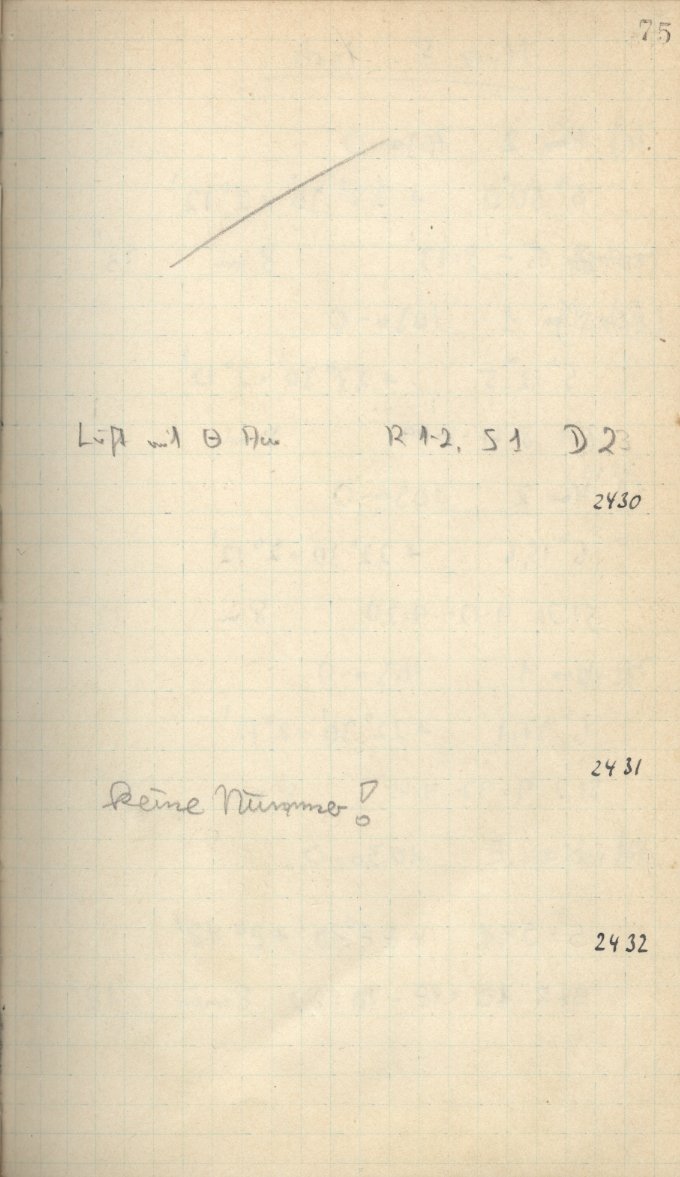 75
Luft mit Θ Aur R 1-2, S 1 D 2
2430
2431
keine Nummer!
2432